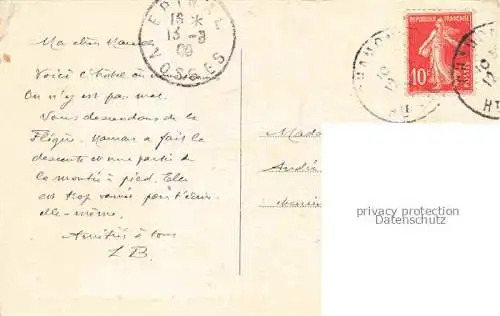 Ma chère
Voici l'hôtel où
On n'y est pas mal.
Nous descendons de la
Flégère. Maman a fait la
descente et une partie de
la montée à pied. Elle
est trop vannée pour t'écrire
elle-même.
Amitiés à tous
L B.
EPINAL
18 *
13 - 8
09
VOSGES
CHAMO
REPUBLIQUE FRANÇAISE
10 c
POSTES
Hte
CHAMO
Hte
Mada
André
chemin
privacy protection
Datenschutz